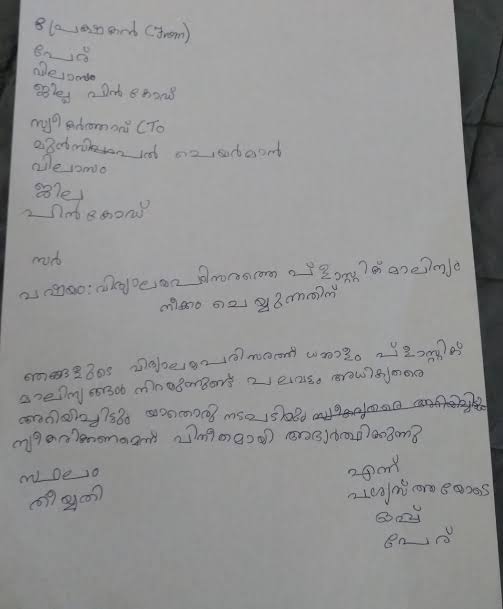 പ്രേഷകൻ (From)
പേര്
വിലാസം
ജില്ല പിൻകോഡ്
സ്വീകർത്താവ് (To
മുൻസിപ്പൽ ചെയർമാൻ
വിലാസം
ജില്ല
പിൻകോഡ്
സർ
വിഷയം: വിദ്യാലയപരിസരത്തെ പ്ളാസ്റ്റിക് മാലിന്യം
നീക്കം ചെയ്യുന്നതിന്
ഞങ്ങളുടെ വിദ്യാലയപരിസരത്ത് ധാരാളം പ്ളാസ്റ്റിക്
മാലിന്യങ്ങൾ നിറയുന്നുണ്ട് പലവട്ടം അധികൃതരെ
അറിയിച്ചിട്ടും യാതൊരു നടപടിയും
സ്വീകരിക്കണമെന്ന് വിനീതമായി അഭ്യർത്ഥിക്കുന്നു
സ്ഥലം
തീയ്യതി
എന്ന്
വിശ്വസ്തതയോടെ
ഒപ്പ്
പേര്